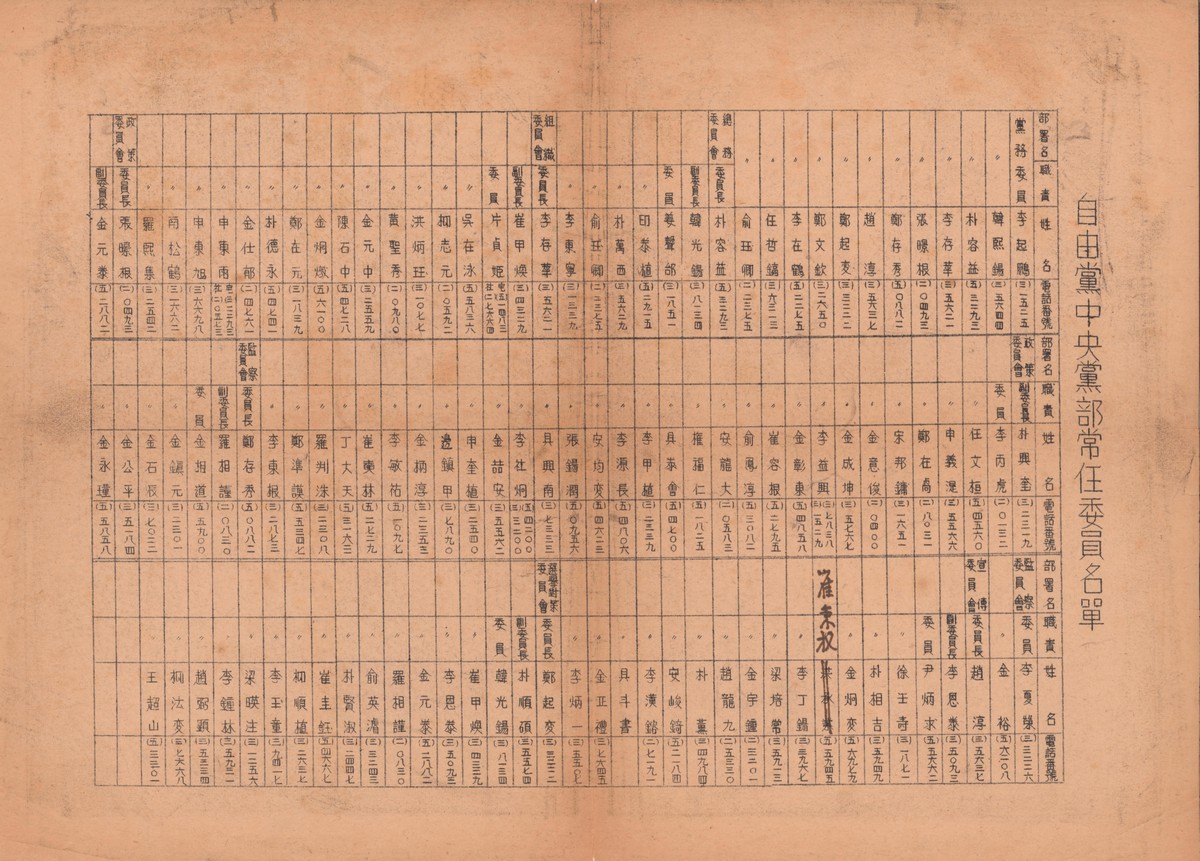 自由黨中央黨部常任委員名單
部署名 職責 姓名 電話番號
黨務委員 李起鵬 (三)一五二五
〃 韓熙錫 (三)五六四四
〃 朴容益 (五)三二九三
〃 李存華 (三)五六二一
〃 張暻根 (二)〇四九三
〃 鄭存秀 (五)〇八八二
〃 趙淳 (三)五六三七
〃 鄭起奎 (三)三三二二
〃 鄭文欽 (三)二六五〇
〃 李在鶴
〃 任哲鎬 (三)六三二三
〃 俞珏卿 (二)二三七五
總務委員會 委員長 朴容益 (五)三二九三
副委員長 韓光錫 (三)八一三四
委員 姜聲邰 (三)一八五一
〃 印泰植 (五)二九一五
〃 朴萬西 (三)五六二九
〃 俞珏卿 (二)二三七五
〃 李東寧 (三)一一三九
組織委員會 委員長 李存華 (三)五六二一
副委員長 崔甲煥 (三)四三二九
委員 片貞姬
〃 吳在泳 (五)五八三六
〃 柳志元 (二)〇五九二
〃 洪炳珏 (三)一〇七七
〃 黃聖秀 (二)〇九八〇
〃 金元中 (三)二五五九
〃 陳石中 (五)四七二八
〃 金炯燉 (五)六一〇〇
〃 鄭在元 (三)一八三九
〃 朴德永 (五)四七四一
〃 金仕郁 (二)四七六一
〃 申東雨
〃 申東旭 (三)六六九八
〃 南松鶴 (三)一六六二
〃 羅熙集 (三)二五四二
政策委員會 委員長 張暻根 (二)〇四九三
副委員長 金元泰 (五)二八八二
部署名 職責 姓名 電話番號
政策委員會 副委員長 朴興奎 (三)二三一九
委員 李丙虎 (二)〇一三二
〃 任文桓 (五)四五六六
〃 申義湜 (三)五五六〇
〃 鄭在卨 (二)八〇三一
〃 宋邦鏞 (三)一六五一
〃 金意俊 (二)〇四〇〇
〃 金成坤 (三)五七六七
〃 李益興
〃 金彰東 (五)四八五八
〃 崔容根 (五)二七九五
〃 俞鳳淳 (五)三〇八二
〃 安龍大 (二)〇五八三
〃 崔福仁 (五)一八二五
〃 具泰會 (五)四七〇〇
〃 李甲植 (三)二三三九
〃 李源長 (五)四八〇六
〃 安均奎 (五)四六二三
〃 張錫潤 (五)〇九五六
〃 具興南 (三)七三三三
〃 李社炯
〃 金喆安 (三)五五六二
〃 申奎植 (五)二三四〇
〃 邊鎭甲 (三)七八九〇
〃 金炳淳 (三)二三五三
〃 李敬祐 (五)一〇九七
〃 崔奭林 (五)二七二九
〃 丁大天 (五)三一六三
〃 羅判洙 (三)二三〇八
〃 鄭準謨 (五)五三三七
〃 李東根 (三)二八七三
監察委員會 委員長 鄭存秀 (五)〇八八二
副委員長 羅相謹 (二)〇八三〇
委員 金相道 (五)五九〇〇
〃 金鎭元 (三)二三〇一
〃 金石辰 (三)七〇三二
〃 金公平 (三)五一八四
〃 金永瑾 (五)五八五八
部署名 職責 姓名 電話番號
監察委員會 委員 李夏榮 (三)三三二六
〃 金裕 (五)六二〇八
宣傳委員會 委員長 趙淳 (三)五六三七
副委員長 李恩泰 (三)五〇九三
委員 尹炳求 (五)五六六二
〃 徐壬壽 (三)一八七一
〃 朴相吉 (三)五九四九
〃 金炯奎 (五)六九七九
崔秉权
〃 (五)五九四五
〃 李丁錫 (三)三九六七
〃 梁培常 (三)五九一三
〃 金宇鍾 (二)三二〇一
〃 趙龍九 (五)二五三〇
〃 朴薰 (三)四九八四
〃 安峻錡 (五)二一八四
〃 李漢鎔 (二)七一九一
〃 具斗書
〃 金正禮 (三)七六四五
〃 李炳一 (三)三五五〇
部署對策委員會 委員長 鄭起奎 (三)三三二二
副委員長 朴順碩 (三)五五七四
委員 韓光錫 (三)八一三四
〃 崔甲煥 (三)四三二九
〃 李恩泰 (三)五〇九三
〃 金元泰 (五)二八八二
〃 羅相謹 (二)〇八三〇
〃 俞英濬 (三)三二四三
〃 朴賢淑 (三)二四四七
〃 崔圭鈺 (五)四六六七
〃 柳順植 (三)二六三二
〃 李玉童 (三)九四一七
〃 梁暎注 (三)一二五六
〃 李鍾林 (三)五九二一
〃 趙弼顯 (三)五三三四
〃 柳汯奎 (三)七六六八
〃 王超山 (五)三三〇一